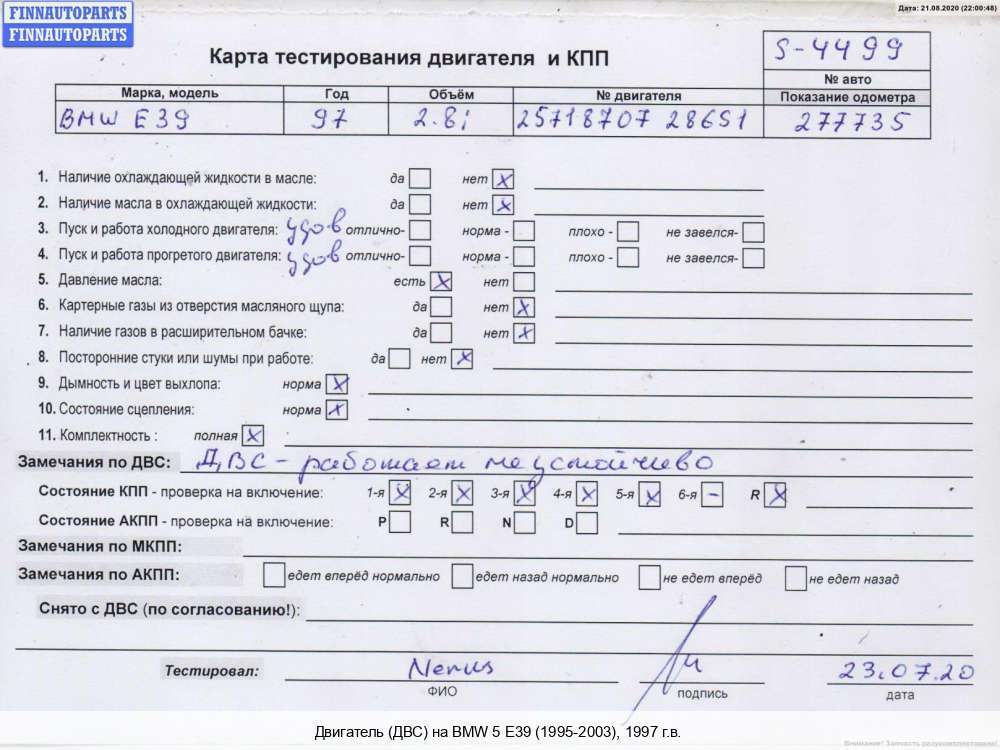 FINNAUTOPARTS
FINNAUTOPARTS
Дата: 21.08.2020 (22:00:48)
Карта тестирования двигателя и КПП
S-4499
№ авто
Марка, модель Год Объём № двигателя Показание одометра
BMW E39 97 2.8i 25718707 286S1 277735
1. Наличие охлаждающей жидкости в масле: да нет X
2. Наличие масла в охлаждающей жидкости: да нет X
3. Пуск и работа холодного двигателя: удов отлично- норма - плохо - не завелся-
4. Пуск и работа прогретого двигателя: удов отлично- норма - плохо - не завелся-
5. Давление масла: есть X нет
6. Картерные газы из отверстия масляного щупа: да нет X
7. Наличие газов в расширительном бачке: да нет X
8. Посторонние стуки или шумы при работе: да нет X
9. Дымность и цвет выхлопа: норма X
10. Состояние сцепления: норма X
11. Комплектность : полная X
Замечания по ДВС: ДВС - работает неустойчиво
Состояние КПП - проверка на включение: 1-я X 2-я X 3-я X 4-я X 5-я X 6-я - R X
Состояние АКПП - проверка на включение: P R N D
Замечания по МКПП:
Замечания по АКПП: едет вперёд нормально едет назад нормально не едет вперёд не едет назад
Снято с ДВС (по согласованию!):
Тестировал: 23.07.20
ФИО подпись дата
Двигатель (ДВС) на BMW 5 E39 (1995-2003), 1997 г.в.
Внимание! Запчасть разукомплектована!